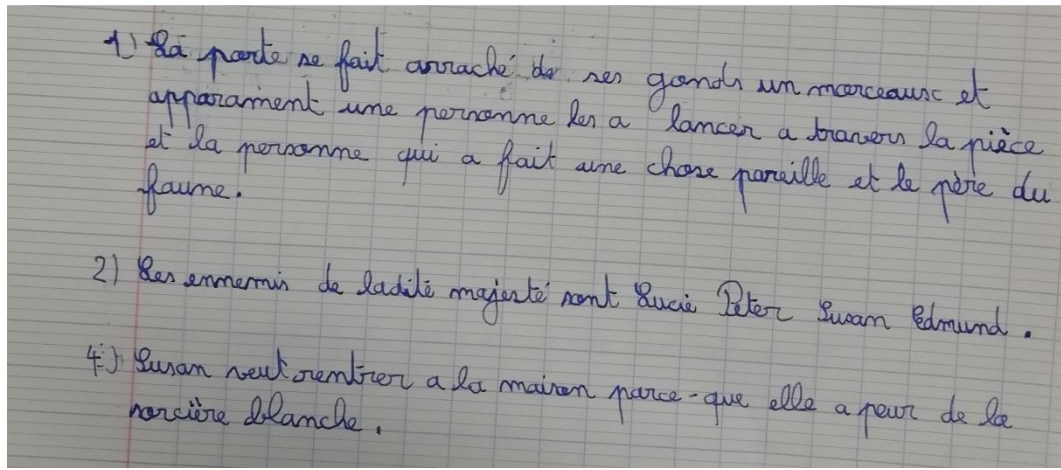 1) La porte se fait arraché de ses gonds un morceaux et
apparament une personne les a lancer a travers la pièce
et la personne qui a fait une chose pareille et le père du
faune.
2) Les ennemis de ladité majesté sont Lucie Peter Susan Edmund.
4) Susan veut rentrer a la maison parce-que elle a peur de la
sorcière blanche.